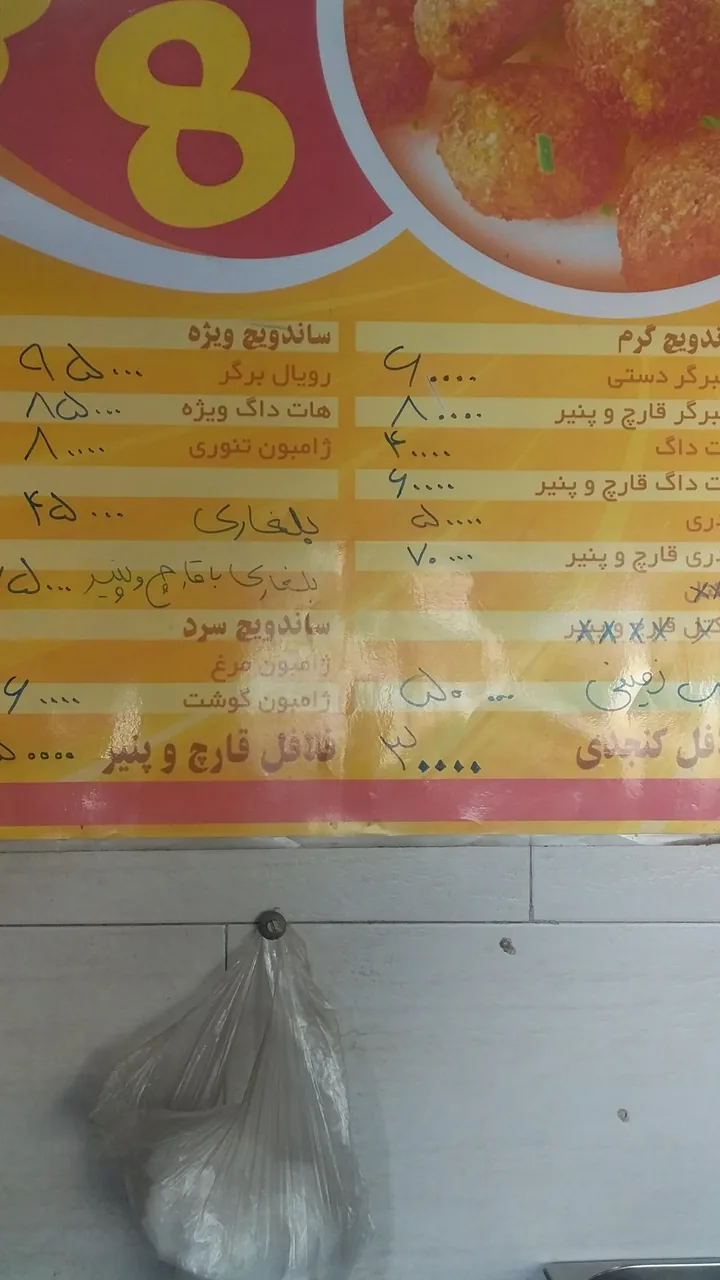 ساندویچ گرم
برگر دستی ۶۰۰۰۰
برگر قارچ و پنیر ۸۰۰۰۰
هات داگ ۴۰۰۰۰
هات داگ قارچ و پنیر ۶۰۰۰۰
بندری ۵۰۰۰۰
بندری قارچ و پنیر ۷۰۰۰۰
قارچ و پنیر
زمینی ۵۰۰۰۰
فلافل کنجدی ۳۰۰۰۰
ساندویچ ویژه
رویال برگر ۹۵۰۰۰
هات داگ ویژه ۸۵۰۰۰
ژامبون تنوری ۸۰۰۰۰
بلغاری ۴۵۰۰۰
بلغاری با قارچ و پنیر ۵۰۰۰
ساندویچ سرد
ژامبون مرغ
ژامبون گوشت ۶۰۰۰۰
فلافل قارچ و پنیر ۵۰۰۰۰